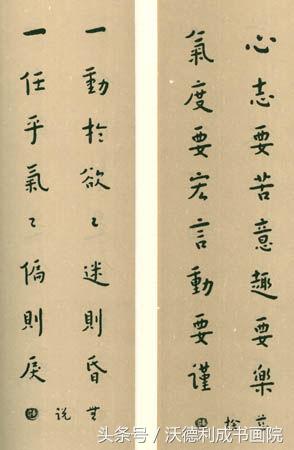 心志要苦意趣要樂
氣度要宏言動要謹
一動於欲〻迷則昏
一任乎氣〻偏則戾
头条号 / 沃德利成书画院